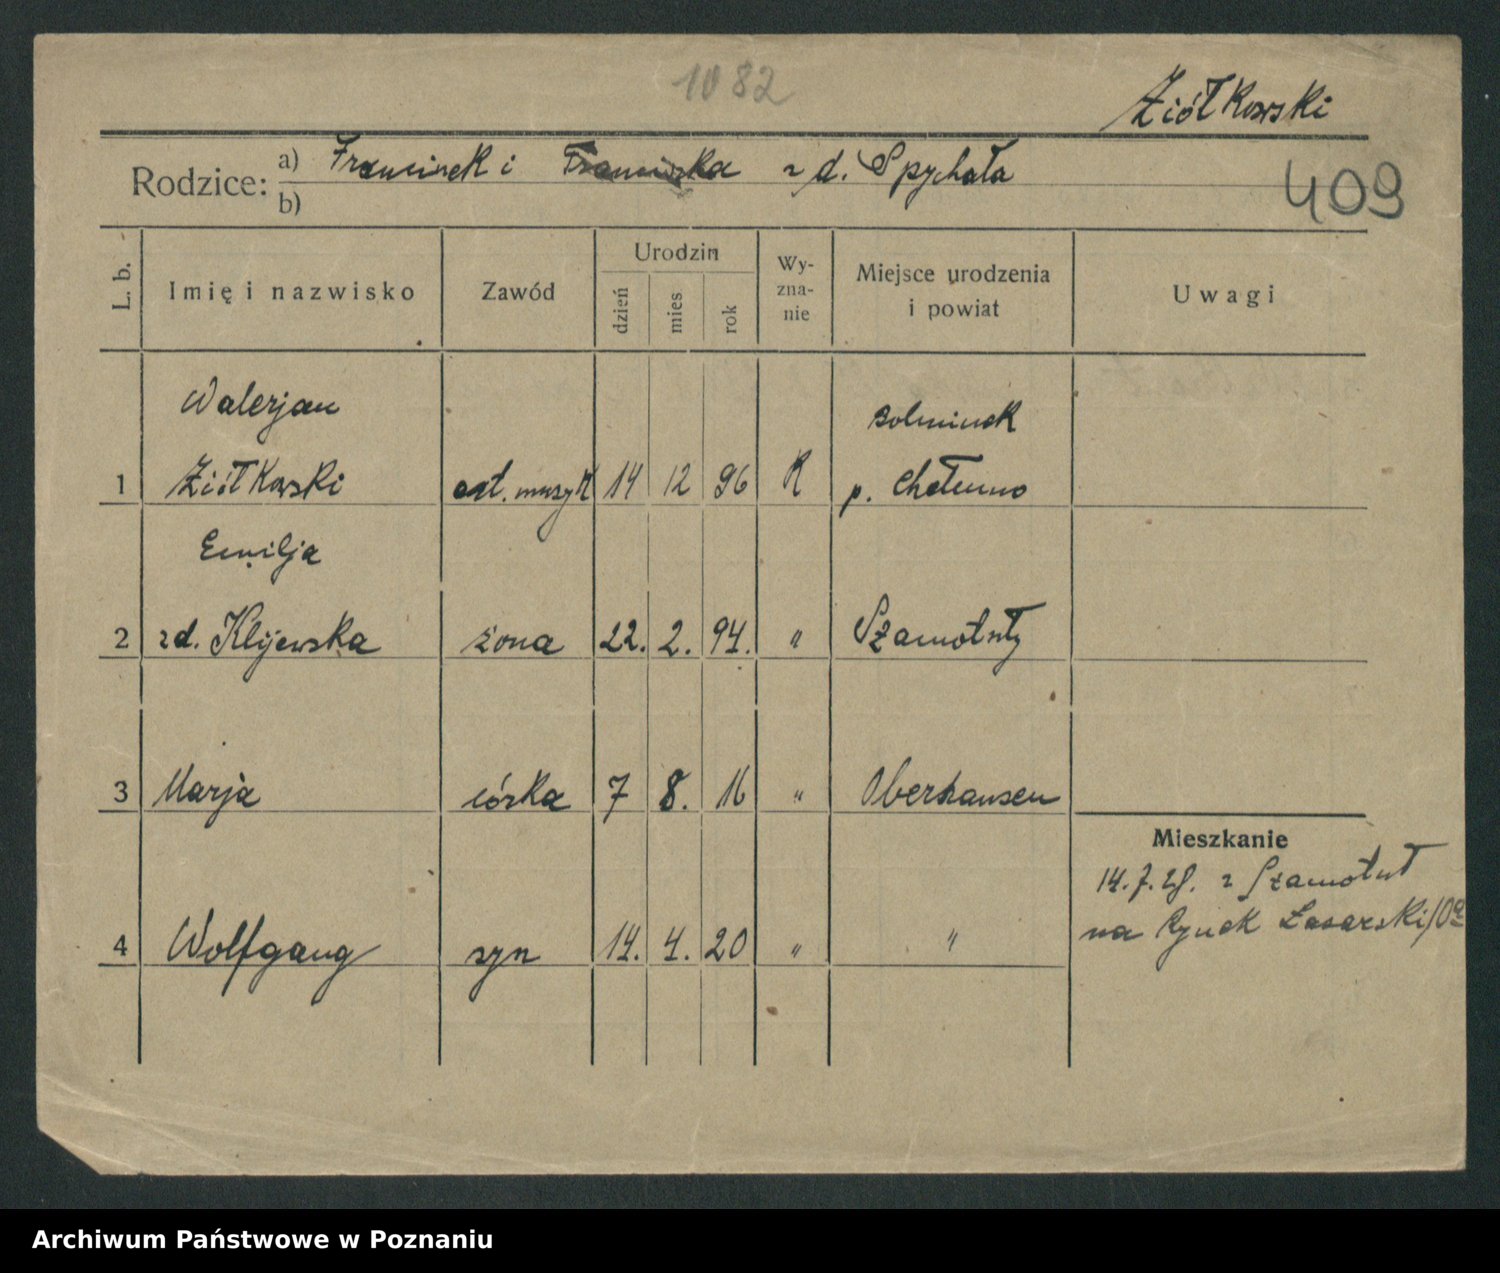 1082
Ziółkowski
Rodzice: a) Franciszek i Franciszka z d. Spychała
b)
409
L. b.
Imię i nazwisko
Zawód
Urodzin
dzień
mies
rok
Wy-
zna-
nie
Miejsce urodzenia
i powiat
Uwagi
Walerjan
1 Ziółkowski art. muzyk 14 12 96 R
p. Chełmno
Emilja
2 z d. Klijewska żona 22. 2. 94. " Szamotuły
3 Marja córka 7 8. 16 " Oberhausen
Mieszkanie
14. 7. 28. z Szamotuł
na Rynek Łazarski
4 Wolfgang syn 14. 4. 20 " "
Archiwum Państwowe w Poznaniu